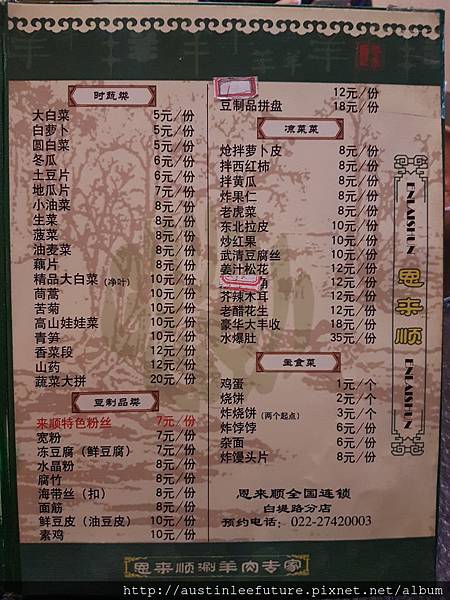 时蔬类
大白菜 5元/份
白萝卜 5元/份
圆白菜 5元/份
冬瓜 6元/份
土豆片 6元/份
地瓜片 7元/份
小油菜 8元/份
生菜 8元/份
菠菜 8元/份
油麦菜 8元/份
藕片 8元/份
精品大白菜(净叶) 10元/份
茼蒿 10元/份
苦菊 10元/份
高山娃娃菜 10元/份
青笋 10元/份
香菜段 12元/份
山药 12元/份
蔬菜大拼 20元/份
豆制品类
来顺特色粉丝 7元/份
宽粉 7元/份
冻豆腐(鲜豆腐) 7元/份
水晶粉 8元/份
腐竹 8元/份
海带丝(扣) 8元/份
面筋 8元/份
鲜豆皮(油豆皮) 10元/份
素鸡 10元/份
12元/份
豆制品拼盘 18元/份
凉菜菜
炝拌萝卜皮 8元/份
拌西红柿 8元/份
拌黄瓜 8元/份
炸果仁 8元/份
老虎菜 8元/份
东北拉皮 10元/份
炒红果 10元/份
武清豆腐丝 10元/份
姜汁松花 12元/份
12元/份
芥辣木耳 12元/份
老醋花生 12元/份
豪华大丰收 18元/份
水爆肚 35元/份
主食菜
鸡蛋 1元/个
烧饼 2元/个
炸烧饼(两个起点) 3元/个
炸饽饽 6元/份
杂面 6元/份
炸馒头片 8元/份
恩来顺全国连锁
白堤路分店
预约电话: 022-27420003
ENLAISHUN
恩来顺
ENLAISHUN
恩来顺涮羊肉专家
http://austinleefuture.pixnet.net/album